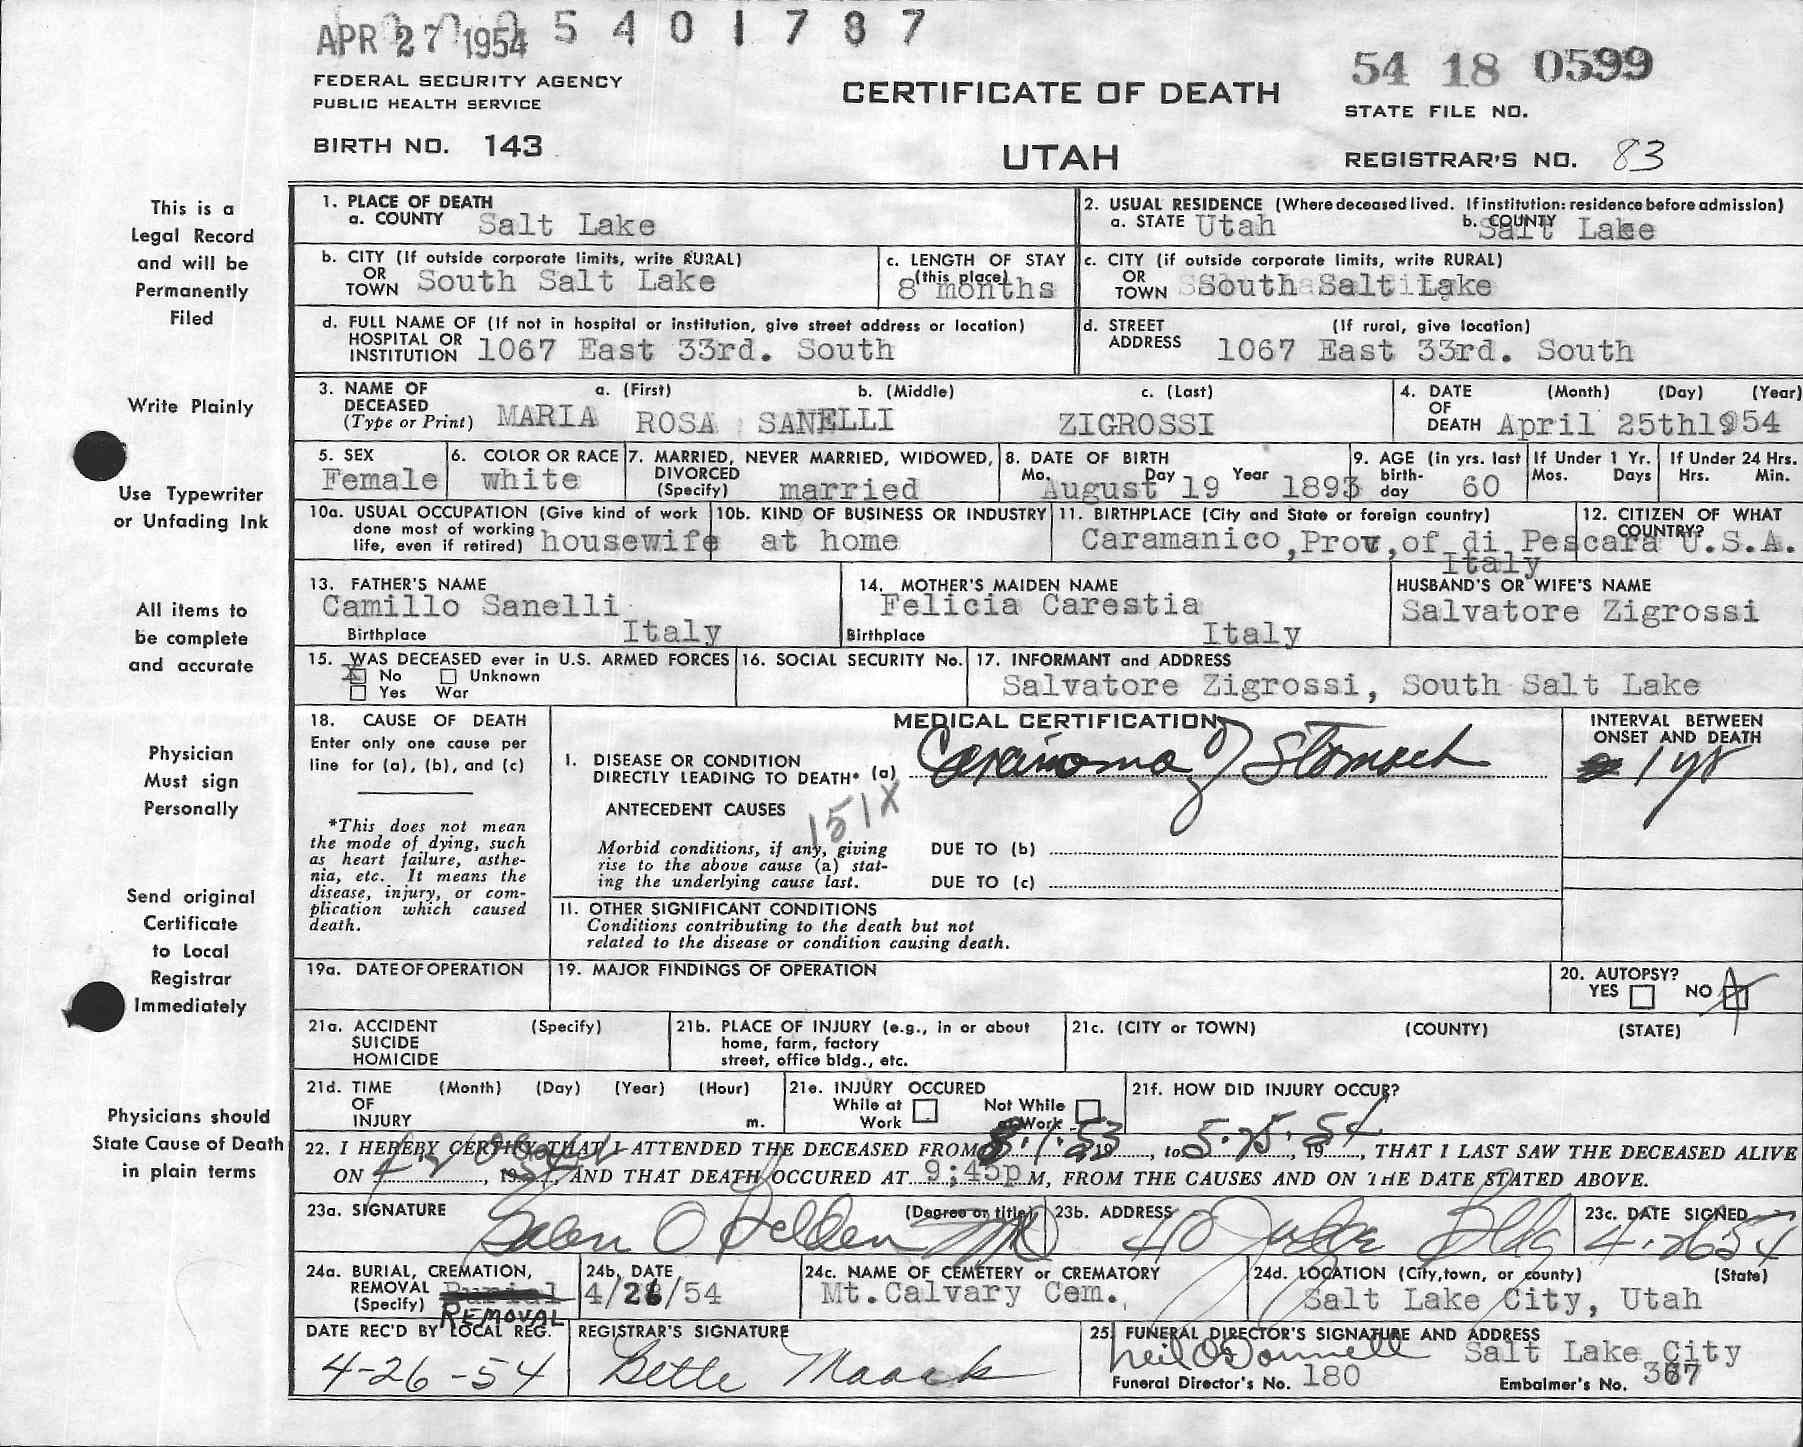 APR 27 1954 5 4 0 1 7 8 7
54 18 0599
FEDERAL SECURITY AGENCY
PUBLIC HEALTH SERVICE
CERTIFICATE OF DEATH
STATE FILE NO.
BIRTH NO. 143
UTAH
REGISTRAR'S NO. 83
This is a
Legal Record
and will be
Permanently
Filed
Write Plainly
Use Typewriter
or Unfading Ink
All items to
be complete
and accurate
Physician
Must sign
Personally
Send original
Certificate
to Local
Registrar
Immediately
Physicians should
State Cause of Death
in plain terms
1. PLACE OF DEATH
a. COUNTY Salt Lake
2. USUAL RESIDENCE (Where deceased lived. If institution: residence before admission)
a. STATE Utah b. COUNTY Salt Lake
b. CITY (If outside corporate limits, write RURAL)
OR
TOWN South Salt Lake
c. LENGTH OF STAY
(this place)
8 months
c. CITY (if outside corporate limits, write RURAL)
OR
TOWN South Salt Lake
d. FULL NAME OF (If not in hospital or institution, give street address or location)
HOSPITAL OR
INSTITUTION 1067 East 33rd. South
d. STREET (If rural, give location)
ADDRESS 1067 East 33rd. South
3. NAME OF a. (First) b. (Middle) c. (Last)
DECEASED
(Type or Print) MARIA ROSA SANELLI ZIGROSSI
4. DATE (Month) (Day) (Year)
OF
DEATH April 25th1954
5. SEX
Female
6. COLOR OR RACE
white
7. MARRIED, NEVER MARRIED, WIDOWED,
DIVORCED
(Specify) married
8. DATE OF BIRTH
Mo. Day Year
August 19 1893
9. AGE (in yrs. last
birth-
day 60
If Under 1 Yr.
Mos. Days
If Under 24 Hrs.
Hrs. Min.
10a. USUAL OCCUPATION (Give kind of work
done most of working
life, even if retired) housewife
10b. KIND OF BUSINESS OR INDUSTRY
at home
11. BIRTHPLACE (City and State or foreign country)
Caramanico,Prov,of di Pescara
Italy
12. CITIZEN OF WHAT
COUNTRY?
U.S.A.
13. FATHER'S NAME
Camillo Sanelli
Birthplace Italy
14. MOTHER'S MAIDEN NAME
Felicia Carestia
Birthplace Italy
HUSBAND'S OR WIFE'S NAME
Salvatore Zigrossi
15. WAS DECEASED ever in U.S. ARMED FORCES
X No Unknown
Yes War
16. SOCIAL SECURITY No.
17. INFORMANT and ADDRESS
Salvatore Zigrossi, South Salt Lake
18. CAUSE OF DEATH
Enter only one cause per
line for (a), (b), and (c)
*This does not mean
the mode of dying, such
as heart failure, asthe-
nia, etc. It means the
disease, injury, or com-
plication which caused
death.
MEDICAL CERTIFICATION
I. DISEASE OR CONDITION
DIRECTLY LEADING TO DEATH* (a) Carcinoma of Stomach
ANTECEDENT CAUSES
151X
Morbid conditions, if any, giving
rise to the above cause (a) stat-
ing the underlying cause last.
DUE TO (b)
DUE TO (c)
II. OTHER SIGNIFICANT CONDITIONS
Conditions contributing to the death but not
related to the disease or condition causing death.
INTERVAL BETWEEN
ONSET AND DEATH
1 yr
19a. DATE OF OPERATION
19. MAJOR FINDINGS OF OPERATION
20. AUTOPSY?
YES NO
21a. ACCIDENT (Specify)
SUICIDE
HOMICIDE
21b. PLACE OF INJURY (e.g., in or about
home, farm, factory
street, office bldg., etc.
21c. (CITY or TOWN) (COUNTY) (STATE)
21d. TIME (Month) (Day) (Year) (Hour)
OF
INJURY m.
21e. INJURY OCCURED
While at Work Not While at Work
21f. HOW DID INJURY OCCUR?
22. I HEREBY CERTIFY THAT I ATTENDED THE DECEASED FROM 8.1.53 19, to 5.25.54, 19, THAT I LAST SAW THE DECEASED ALIVE
ON , 1954, AND THAT DEATH OCCURED AT 9;45p M, FROM THE CAUSES AND ON THE DATE STATED ABOVE.
23a. SIGNATURE (Degree or title)
Galen O Belden MD
23b. ADDRESS
410 Judge Bldg
23c. DATE SIGNED
4.26 54
24a. BURIAL, CREMATION,
REMOVAL Burial
(Specify) REMOVAL
24b. DATE
4/28/54
24c. NAME OF CEMETERY or CREMATORY
Mt.Calvary Cem.,
24d. LOCATION (City, town, or county) (State)
Salt Lake City, Utah
DATE REC'D BY LOCAL REG.
4-26-54
REGISTRAR'S SIGNATURE
Bette Maack
25. FUNERAL DIRECTOR'S SIGNATURE AND ADDRESS
Neil O'Donnell Salt Lake City
Funeral Director's No. 180 Embalmer's No. 367